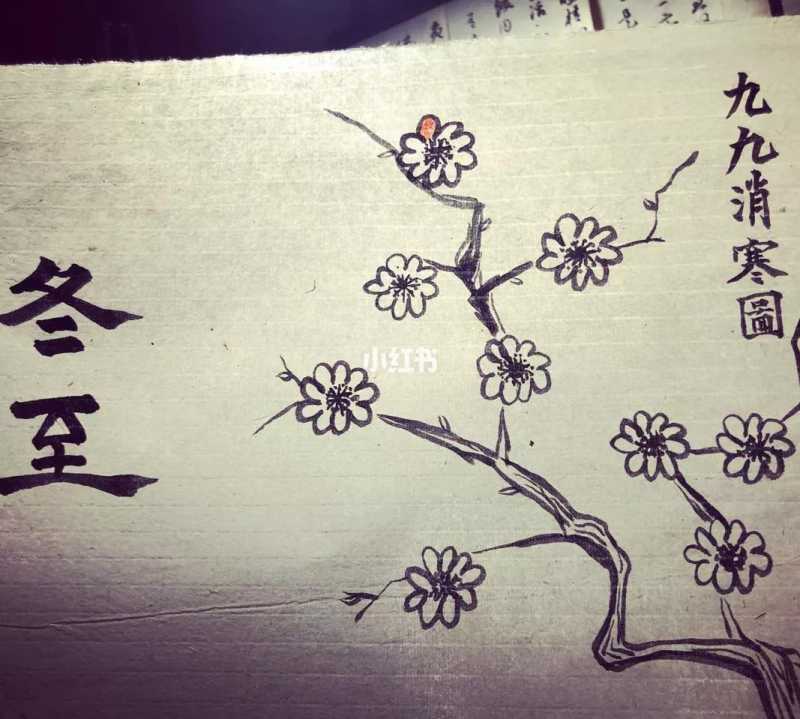 九九消寒圖
冬至
小红书